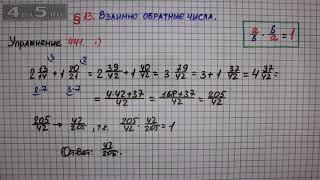 4 из 5.ru
§ 13. Взаимно обратные числа.
a/b · b/a = 1
Упражнение 441. 1)
2 13/14 + 1 20/21 = 2 39/42 + 1 40/42 = 3 79/42 = 3 + 1 37/42 = 4 37/42 =
2·7 3·7
= (4·42+37)/42 = (168+37)/42 = 205/42
205/42 → 42/205, т.к. 205/42 · 42/205 = 1
Ответ: 42/205.